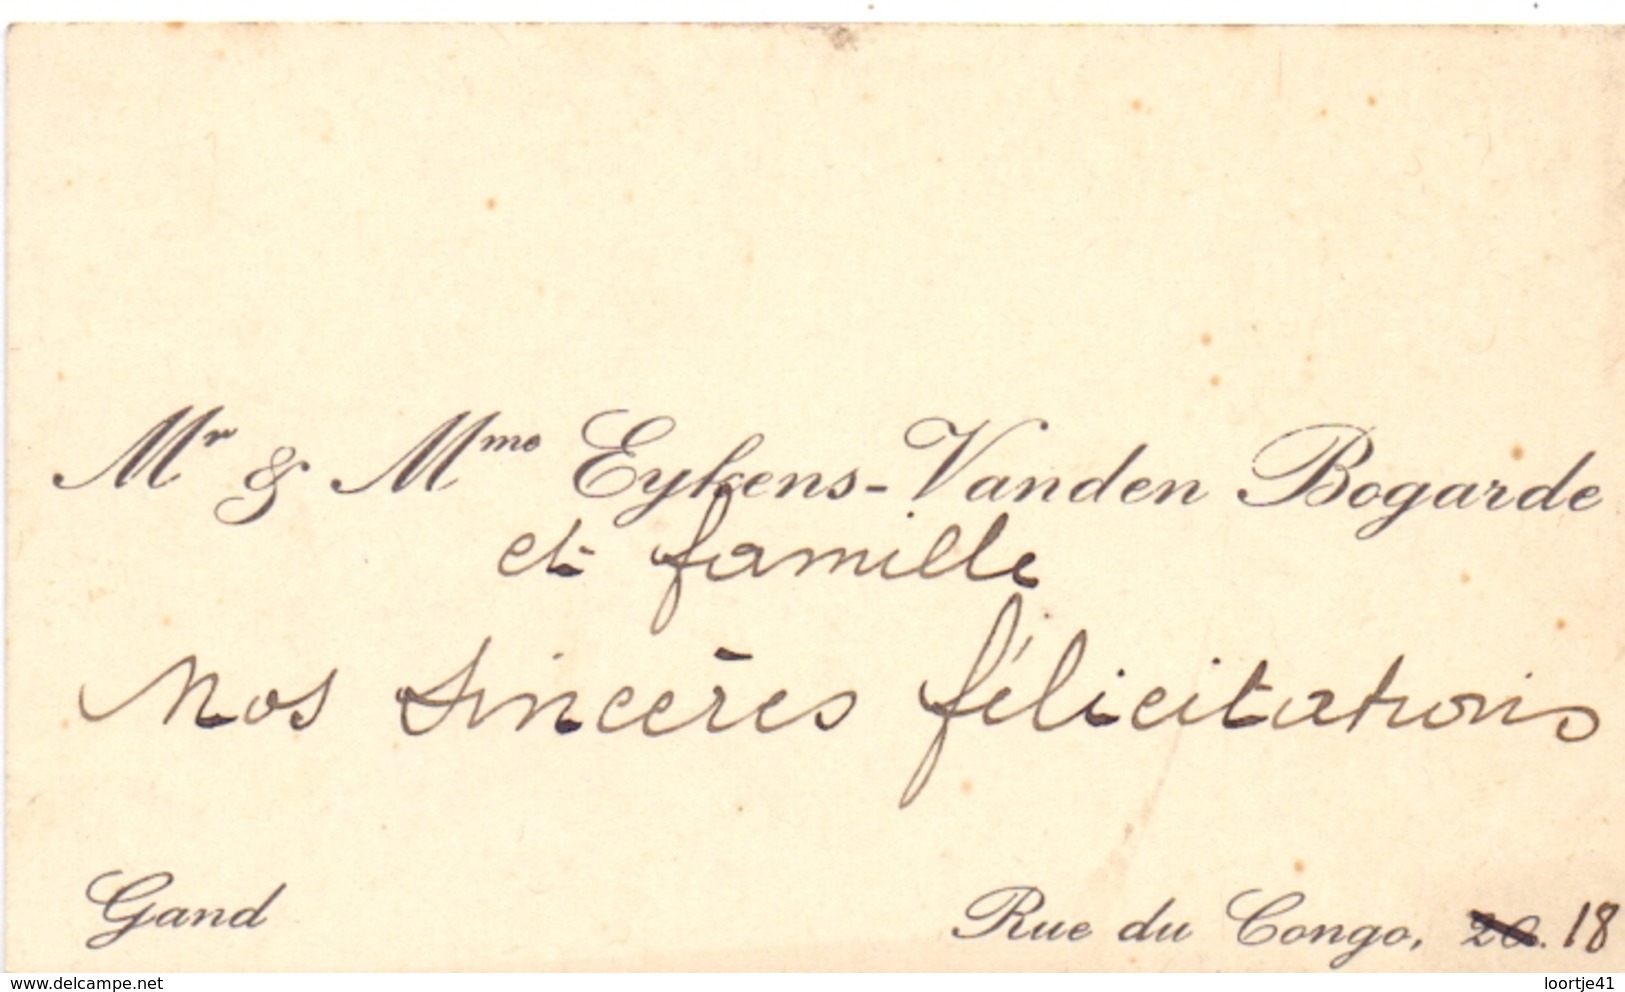 Mr & Mme Eykens-Vanden Bogarde
et famille
Nos sincères félicitations
Gand
Rue du Congo, 20. 18
www.delcampe.net
loortje41